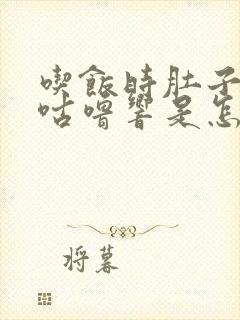 喫飯時肚子
咕嚕響是怎
将暮